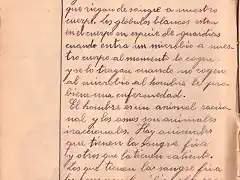 que riegan de sangre a nuestro
cuerpo. Los globulos blancos estan
en el cuerpo en especie de guardias
cuando entra un microbio a nues-
tro cuerpo al momento lo cogen
y se lo tragan cuando no cogen
al microbio al hombre le
una enfermedad.
El hombre es un animal racio-
nal y los asnos son animales
iracionales. Hay animales
que tienen la sangre fria
y otros que la tienen caliente.
Los que tienen la sangre fria